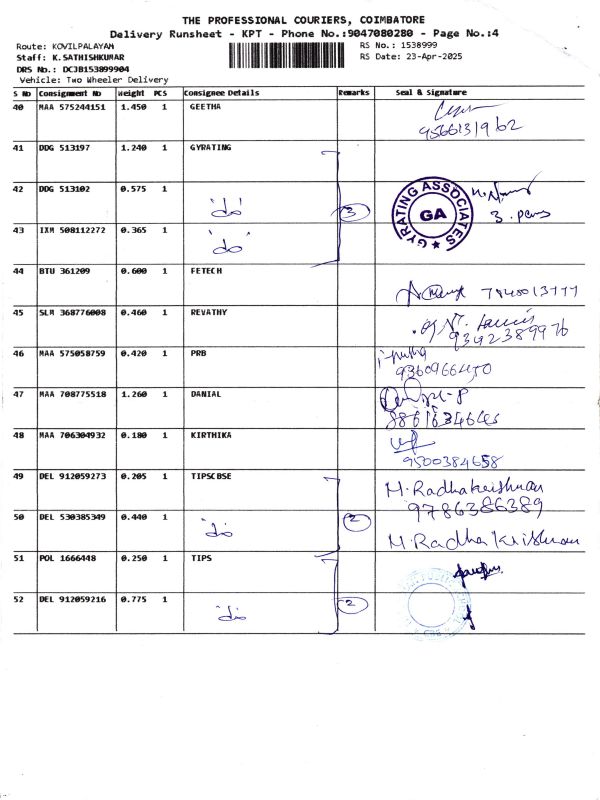 THE PROFESSIONAL COURIERS, COIMBATORE
Delivery Runsheet - KPT - Phone No.:9047080280 - Page No.:4
Route: KOVILPALAYAM
RS No.: 1538999
Staff: K.SATHISHKUMAR
RS Date: 23-Apr-2025
DRS No.: DCJB153899904
Vehicle: Two Wheeler Delivery
S No Consignment No Weight PCS Consignee Details Remarks Seal & Signature
40 MAA 575244151 1.450 1 GEETHA
9566131962
41 DDG 513197 1.240 1 GYRATING
42 DDG 513102 0.575 1 'do' 3
GYRATING ASSOCIATES
GA
3. pcus
43 IXM 508112272 0.365 1 'do'
44 BTU 361209 0.600 1 FETECH
45 SLM 368776008 0.460 1 REVATHY
9342389976
46 MAA 575058759 0.420 1 PRB
9360966450
47 MAA 708775518 1.260 1 DANIAL
48 MAA 706304932 0.180 1 KIRTHIKA
9500384658
49 DEL 912059273 0.205 1 TIPSCBSE
M. Radhakrishnan
9786386389
50 DEL 530385349 0.440 1 'do' 2
M. Radha Krishnan
51 POL 1666448 0.250 1 TIPS
52 DEL 912059216 0.775 1 'do' 2